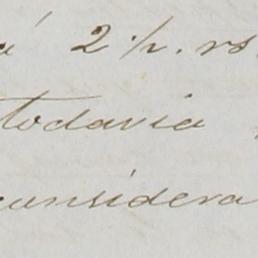 á 2
todavia
considera